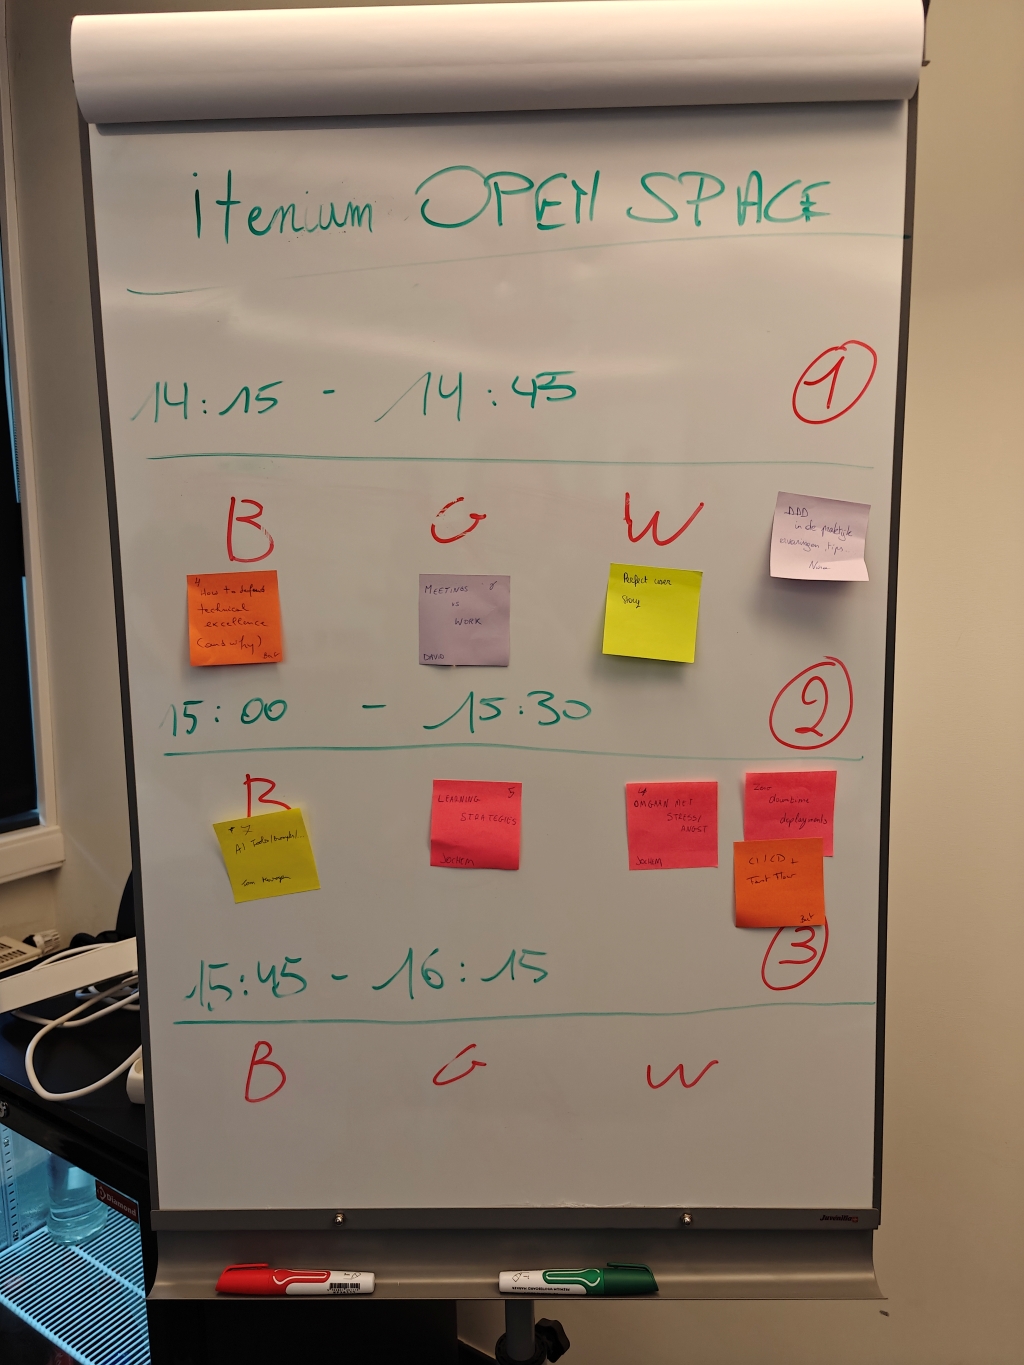 itenium OPEN SPACE
14:15 - 14:45 1
B G W
DDD
in de praktijk
ervaringen, tips
4
How to defend
technical
excellence
(and why)
Bart
MEETINGS
vs
WORK
DAVID
Perfect user
Story
15:00 - 15:30 2
B
7
AI Tools/
Tom
LEARNING 5
STRATEGIES
JOCHEM
4
OMGAAN MET
STRESS/
ANGST
JOCHEM
Zero
downtime
deployments
CI/CD
Bart
15:45 - 16:15 3
B G W
Diamond